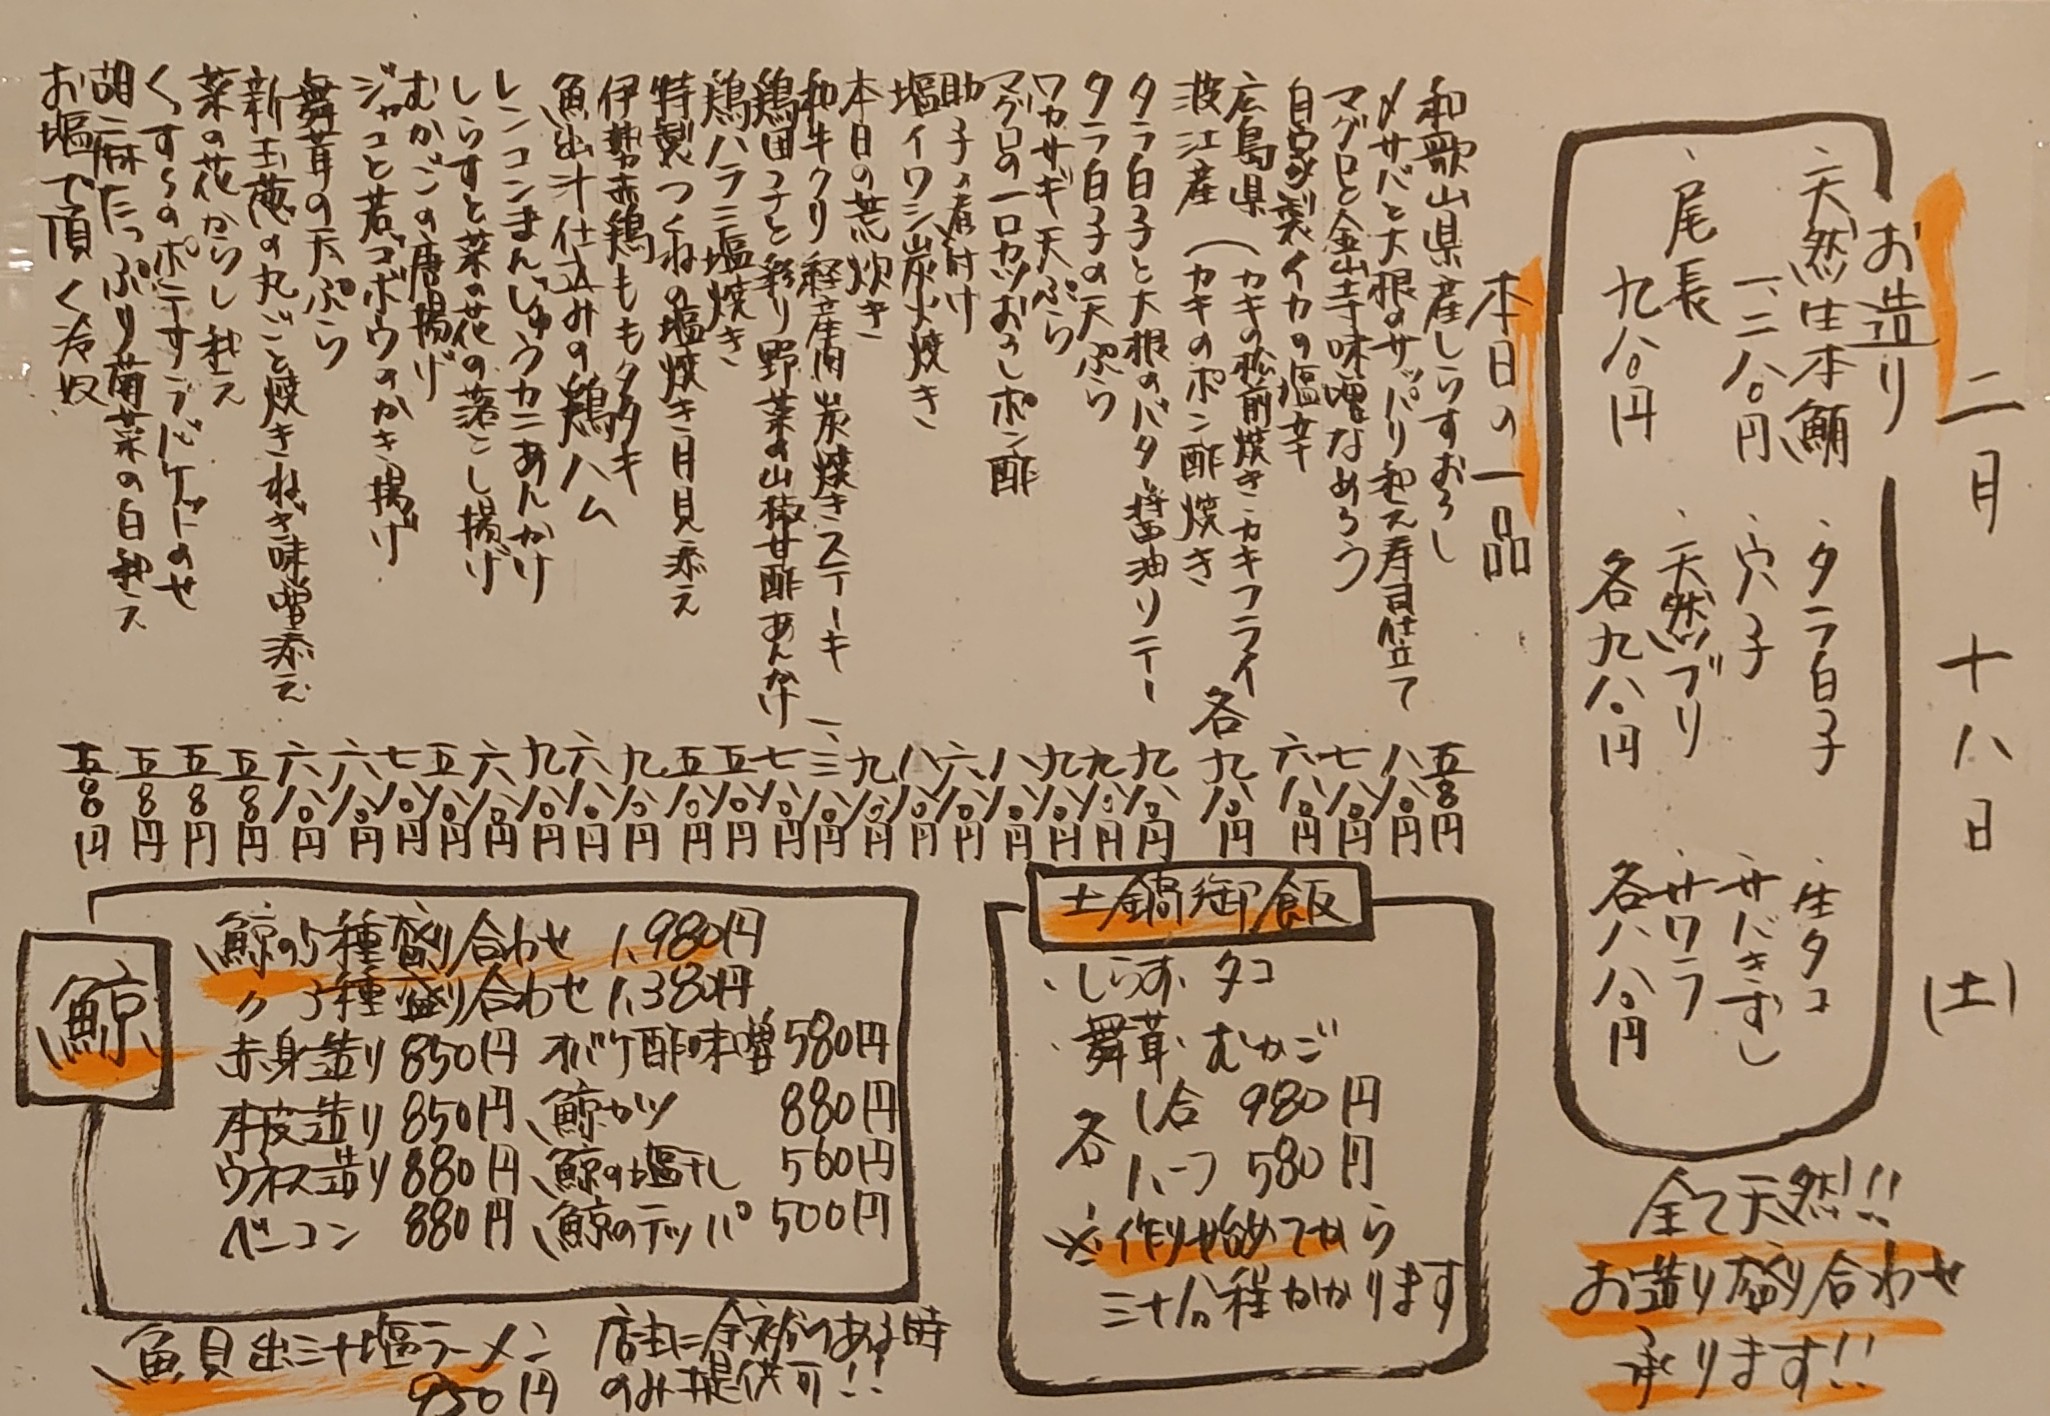 二月十八日(土)
お造り
、天然生本鮪
一、二八〇円
、尾長
九八〇円
、タラ白子
、穴子
、天然ブリ
各九八〇円
、生タコ
、サバきずし
、サワラ
各八八〇円
全て天然!!
お造り盛り合わせ
承ります!!
本日の一品
和歌山県産しらすおろし 五八〇円
〆サバと大根のサッパリ和え寿司仕立て 八八〇円
マグロと金山寺味噌なめろう 七八〇円
自家製イカの塩辛 六八〇円
広島県(カキの松前焼き・カキフライ
波江産(カキのポン酢焼き 各九八〇円
タラ白子と大根のバター醤油ソテー 九八〇円
タラ白子の天ぷら 九八〇円
ワカサギ天ぷら 九八〇円
マグロの一口カツおろしポン酢 八八〇円
助子の煮付け 六八〇円
塩イワシ炭火焼き 八八〇円
本日の荒炊き 九八〇円
和牛クリ経産肉炭焼きステーキ 一、三八〇円
鶏団子と彩り野菜の山椒甘酢あんかけ 七八〇円
鶏ハラミ塩焼き 五八〇円
特製つくねの塩焼き月見添え 五八〇円
伊勢赤鶏ももタタキ 九八〇円
魚出汁仕込みの鶏ハム 六八〇円
レンコンまんじゅうカニあんかけ 九八〇円
しらすと菜の花の落とし揚げ 六八〇円
むかごの唐揚げ 五八〇円
ジャコと若ゴボウのかき揚げ 七八〇円
舞茸の天ぷら 六八〇円
新玉葱の丸ごと焼きねぎ味噌添え 六八〇円
菜の花からし和え 五八〇円
くずしのポテサラバケットのせ 五八〇円
胡麻たっぷり菊菜の白和え 五八〇円
お塩で頂く冷奴 五八〇円
土鍋御飯
、しらす、タコ
、舞茸、むかご
各 1合 980円
ハーフ 580円
※作り始めてから
三十分程かかります
鯨
鯨の5種盛り合わせ 1,980円
〃 3種盛り合わせ 1,380円
赤身造り 850円 オバケ酢味噌 580円
本皮造り 850円 鯨カツ 880円
ウネス造り 880円 鯨の塩干し 560円
ベーコン 880円 鯨のテッパ 500円
魚貝出汁塩ラーメン
950円
店主に余裕がある時
のみ提供可!!